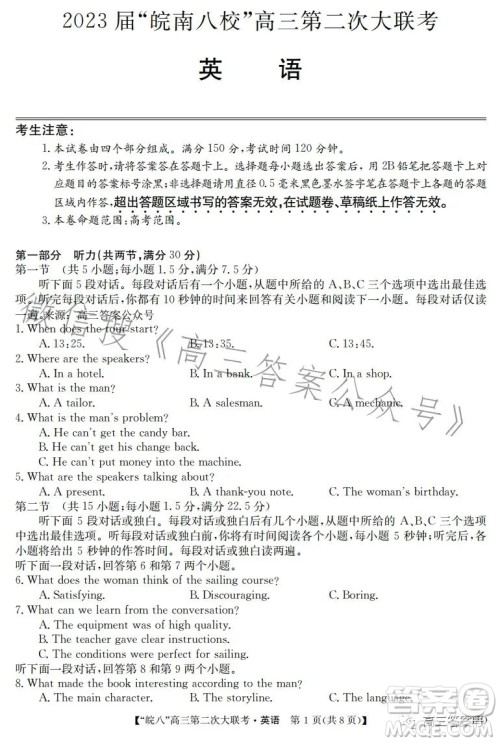 2023 届“皖南八校”高三第二次大联考
英 语
考生注意:
1. 本试卷由四个部分组成。满分 150 分,考试时间 120 分钟。
2. 考生作答时,请将答案答在答题卡上。选择题每小题选出答案后,用 2B 铅笔把答题卡上对应题目的答案标号涂黑;非选择题请用直径 0.5 毫米黑色墨水签字笔在答题卡上各题的答题区域内作答,超出答题区域书写的答案无效,在试题卷、草稿纸上作答无效。
3. 本卷命题范围:高考范围。
第一部分 听力(共两节,满分 30 分)
第一节 (共 5 小题;每小题 1.5 分,满分 7.5 分)
听下面 5 段对话。每段对话后有一个小题,从题中所给的 A、B、C 三个选项中选出最佳选项。听完每段对话后,你都有 10 秒钟的时间来回答有关小题和阅读下一小题。每段对话仅读一遍。来源:高三答案公众号
1. When does the tour start?
A. 13:25. B. 13:35. C. 13:45.
2. Where are the speakers?
A. In a hotel. B. In a bank. C. In a shop.
3. What is the man?
A. A tailor. B. A salesman. C. A mechanic.
4. What is the man's problem?
A. He can't get the candy bar.
B. He can't get his change back.
C. He can't put money into the machine.
5. What are the speakers talking about?
A. A present. B. A thank-you note. C. The woman's birthday.
第二节 (共 15 小题;每小题 1.5 分,满分 22.5 分)
听下面 5 段对话或独白。每段对话或独白后有几个小题,从题中所给的 A、B、C 三个选项中选出最佳选项。听每段对话或独白前,你将有时间阅读各个小题,每小题 5 秒钟;听完后,各小题将给出 5 秒钟的作答时间。每段对话或独白读两遍。
听下面一段对话,回答第 6 和第 7 两个小题。
6. What does the woman think of the sailing course?
A. Satisfying. B. Discouraging. C. Boring.
7. What can we learn from the conversation?
A. The equipment was very new.
B. The teacher gave clear instructions.
C. The class had too many students.
听下面一段对话,回答第 8 和第 9 两个小题。
8. What made the book interesting according to the man?
A. The character. B. The storyline. C. The language.
【“皖八”高三第二次大联考·英语 第 1 页(共 8 页)】
微信搜《高三答案公众号》